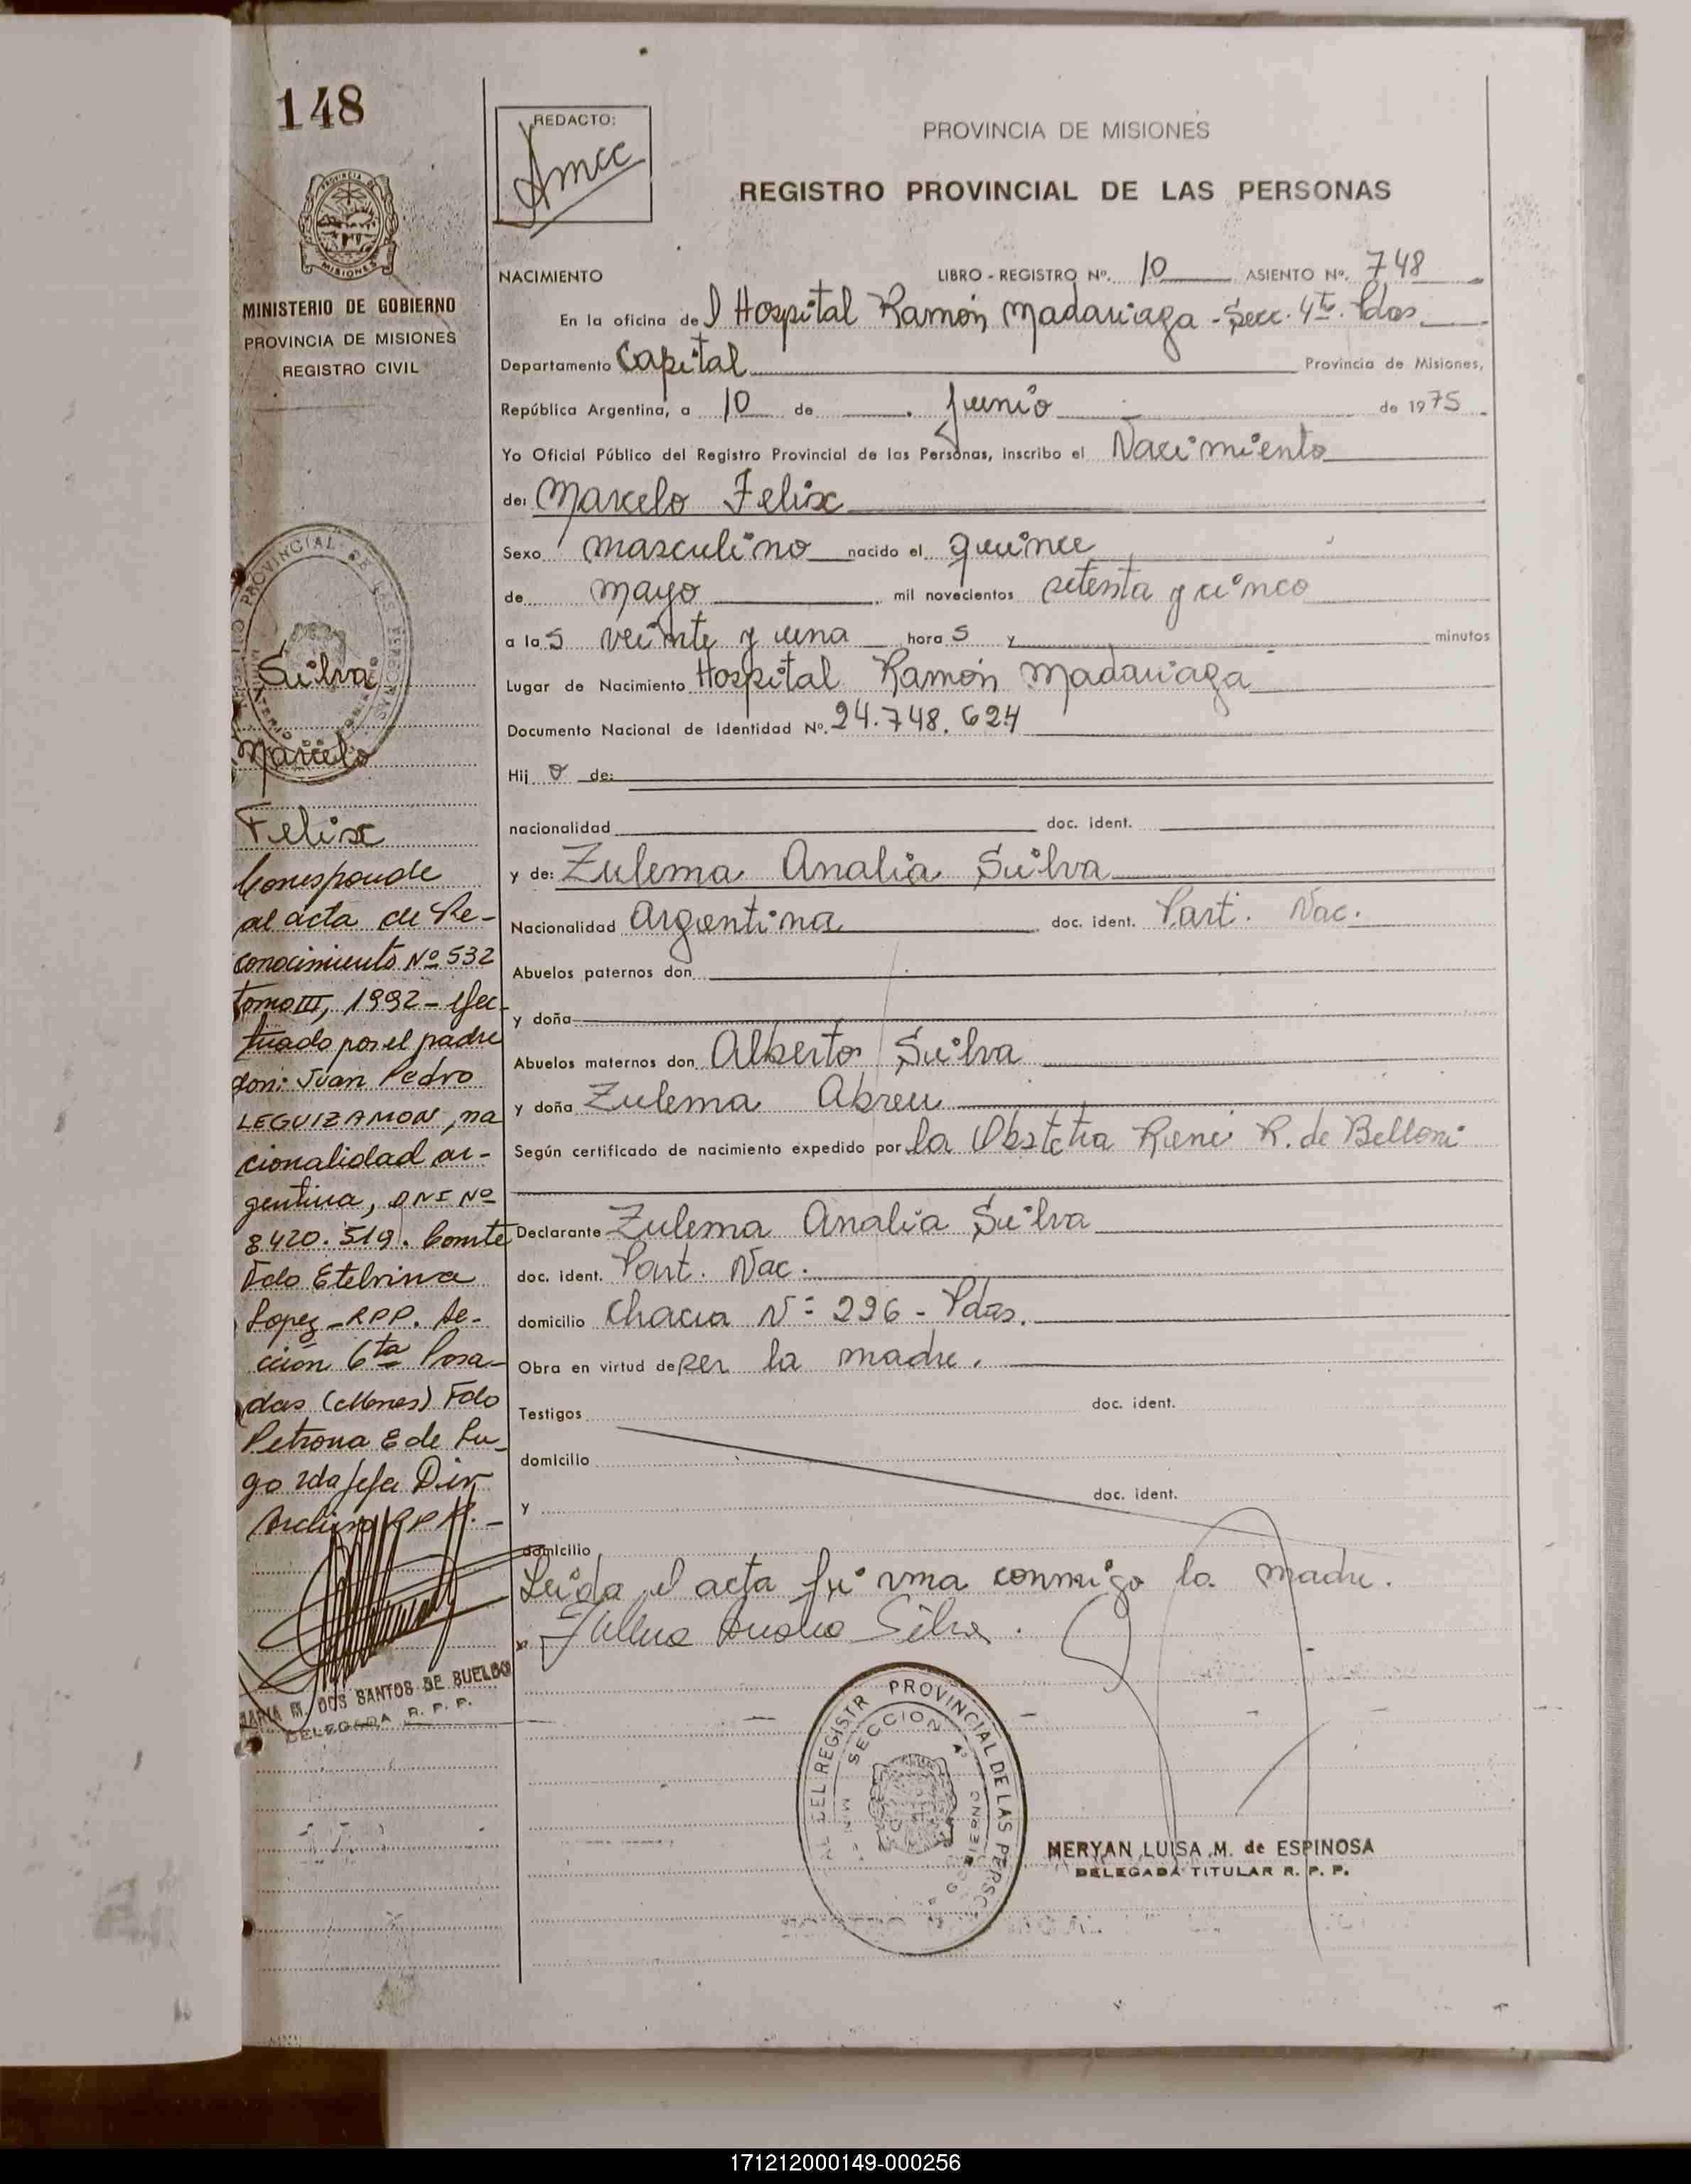 148
REDACTO:
PROVINCIA DE MISIONES
REGISTRO PROVINCIAL DE LAS PERSONAS
MINISTERIO DE GOBIERNO
PROVINCIA DE MISIONES
REGISTRO CIVIL
NACIMIENTO LIBRO - REGISTRO Nº. 10 ASIENTO Nº. 748
En la oficina del Hospital Ramón Madariaga - Secc. 4ta. Pdas
Departamento Capital Provincia de Misiones,
República Argentina, a 10 de Junio de 1975
Yo Oficial Público del Registro Provincial de las Personas, inscribo el Nacimiento
de: Marcelo Felix
Sexo masculino nacido el quince
de mayo mil novecientos setenta y cinco
a las veinte y una horas y minutos
Lugar de Nacimiento Hospital Ramón Madariaga
Documento Nacional de Identidad Nº. 24.748.624
Hijo de:
nacionalidad doc. ident.
y de: Zulema Analia Silva
Nacionalidad Argentina doc. ident. Part. Nac.
Abuelos paternos don
y doña
Abuelos maternos don Alberto Silva
y doña Zulema Abreu
Según certificado de nacimiento expedido por la Obstetra R. de Belloni
Declarante Zulema Analia Silva
doc. ident. Part. Nac.
domicilio Chacra Nº 296 - Pdas.
Obra en virtud de ser la madre.
Testigos doc. ident.
domicilio
y doc. ident.
domicilio
Leida el acta firma conmigo la madre.
Silva
Silva
Marcelo
Felix
Corresponde
al acta de Re-
conocimiento Nº 532
tomo III, 1992 - efec-
tuado por el padre
don: Juan Pedro
LEGUIZAMON, na
cionalidad ar-
gentina, DNI Nº
8.420.519. Conste
Fdo Etelvina
Lopez - RPP. Se-
cción 6ta Posa-
das (Mnes) Fdo
Petrona E de Lu-
go 2da Jefa Dir
Archivo RPP. -
MARIA M. DOS SANTOS DE BUELDO
DELEGADA R. P. P.
DEL REGISTR PROVINCIAL DE LAS PERSO
SECCION 4ª
MERYAN LUISA M. de ESPINOSA
DELEGADA TITULAR R. P. P.
171212000149-000256